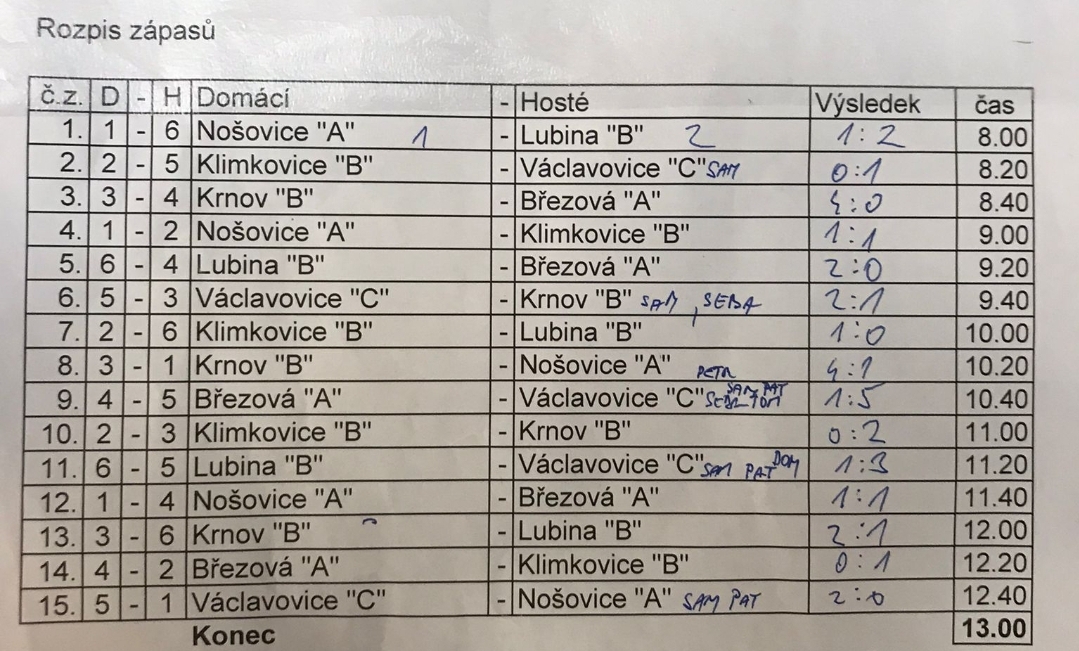 Rozpis zápasů
č.z. D - H Domácí - Hosté Výsledek čas
1. 1 - 6 Nošovice "A" 1 - Lubina "B" 2 1:2 8.00
2. 2 - 5 Klimkovice "B" - Václavovice "C" SAM 0:1 8.20
3. 3 - 4 Krnov "B" - Březová "A" 4:0 8.40
4. 1 - 2 Nošovice "A" - Klimkovice "B" 1:1 9.00
5. 6 - 4 Lubina "B" - Březová "A" 2:0 9.20
6. 5 - 3 Václavovice "C" - Krnov "B" SAM, SEBA 2:1 9.40
7. 2 - 6 Klimkovice "B" - Lubina "B" 1:0 10.00
8. 3 - 1 Krnov "B" - Nošovice "A" 4:1 10.20
9. 4 - 5 Březová "A" - Václavovice "C" PETR SAM PAT SEBA TOM 1:5 10.40
10. 2 - 3 Klimkovice "B" - Krnov "B" 0:2 11.00
11. 6 - 5 Lubina "B" - Václavovice "C" SAM PAT DOM 1:3 11.20
12. 1 - 4 Nošovice "A" - Březová "A" 1:1 11.40
13. 3 - 6 Krnov "B" - Lubina "B" 2:1 12.00
14. 4 - 2 Březová "A" - Klimkovice "B" 0:1 12.20
15. 5 - 1 Václavovice "C" - Nošovice "A" SAM PAT 2:0 12.40
Konec 13.00